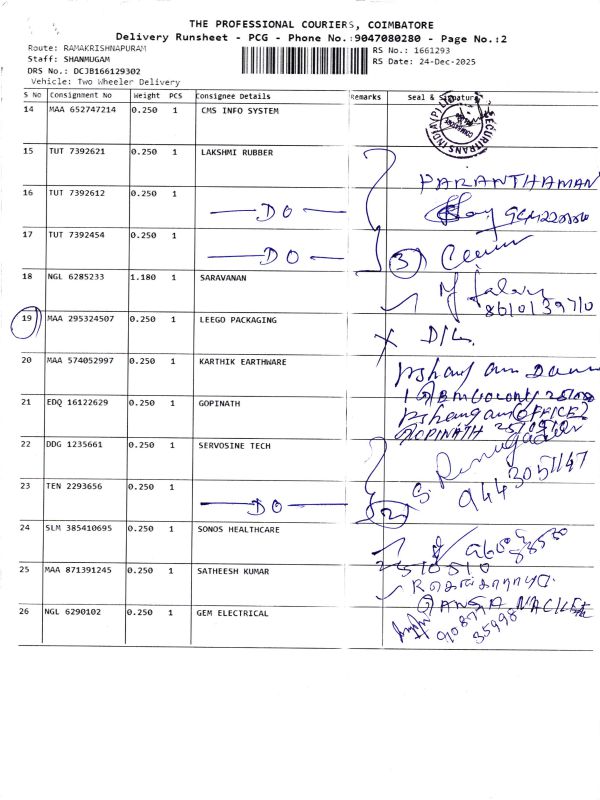 THE PROFESSIONAL COURIERS, COIMBATORE
Delivery Runsheet - PCG - Phone No.:9047080280 - Page No.:2
Route: RAMAKRISHNAPURAM
RS No.: 1661293
Staff: SHANMUGAM
RS Date: 24-Dec-2025
DRS No.: DCJB166129302
Vehicle: Two Wheeler Delivery
S No Consignment No Weight PCS Consignee Details Remarks Seal & Signature
14 MAA 652747214 0.250 1 CMS INFO SYSTEM
15 TUT 7392621 0.250 1 LAKSHMI RUBBER
PARANTHAMAN
16 TUT 7392612 0.250 1 DO
17 TUT 7392454 0.250 1 DO 3
18 NGL 6285233 1.180 1 SARAVANAN
8610139710
19 MAA 295324507 0.250 1 LEEGO PACKAGING X D/L
20 MAA 574052997 0.250 1 KARTHIK EARTHWARE
21 EDQ 16122629 0.250 1 GOPINATH
(OFFICE)
GOPINATH
22 DDG 1235661 0.250 1 SERVOSINE TECH
23 TEN 2293656 0.250 1 DO 2
9443051147
24 SLM 385410695 0.250 1 SONOS HEALTHCARE
25 MAA 871391245 0.250 1 SATHEESH KUMAR
510510
26 NGL 6290102 0.250 1 GEM ELECTRICAL